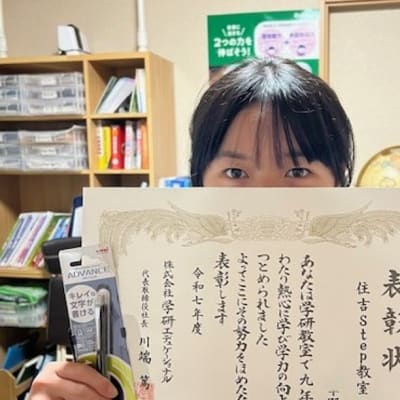 表彰状
住吉Step教室
あなたは学研教室で九年
わたり熱心に学び学力の向上
つとめられました
よってここにその努力をほめたた
表彰します
令和七年度
株式会社学研エデュケーショナル
代表取締役社長 川端 篤
2つの力を
伸ばそう!
ADVANCE
キレイな
文字が
書ける